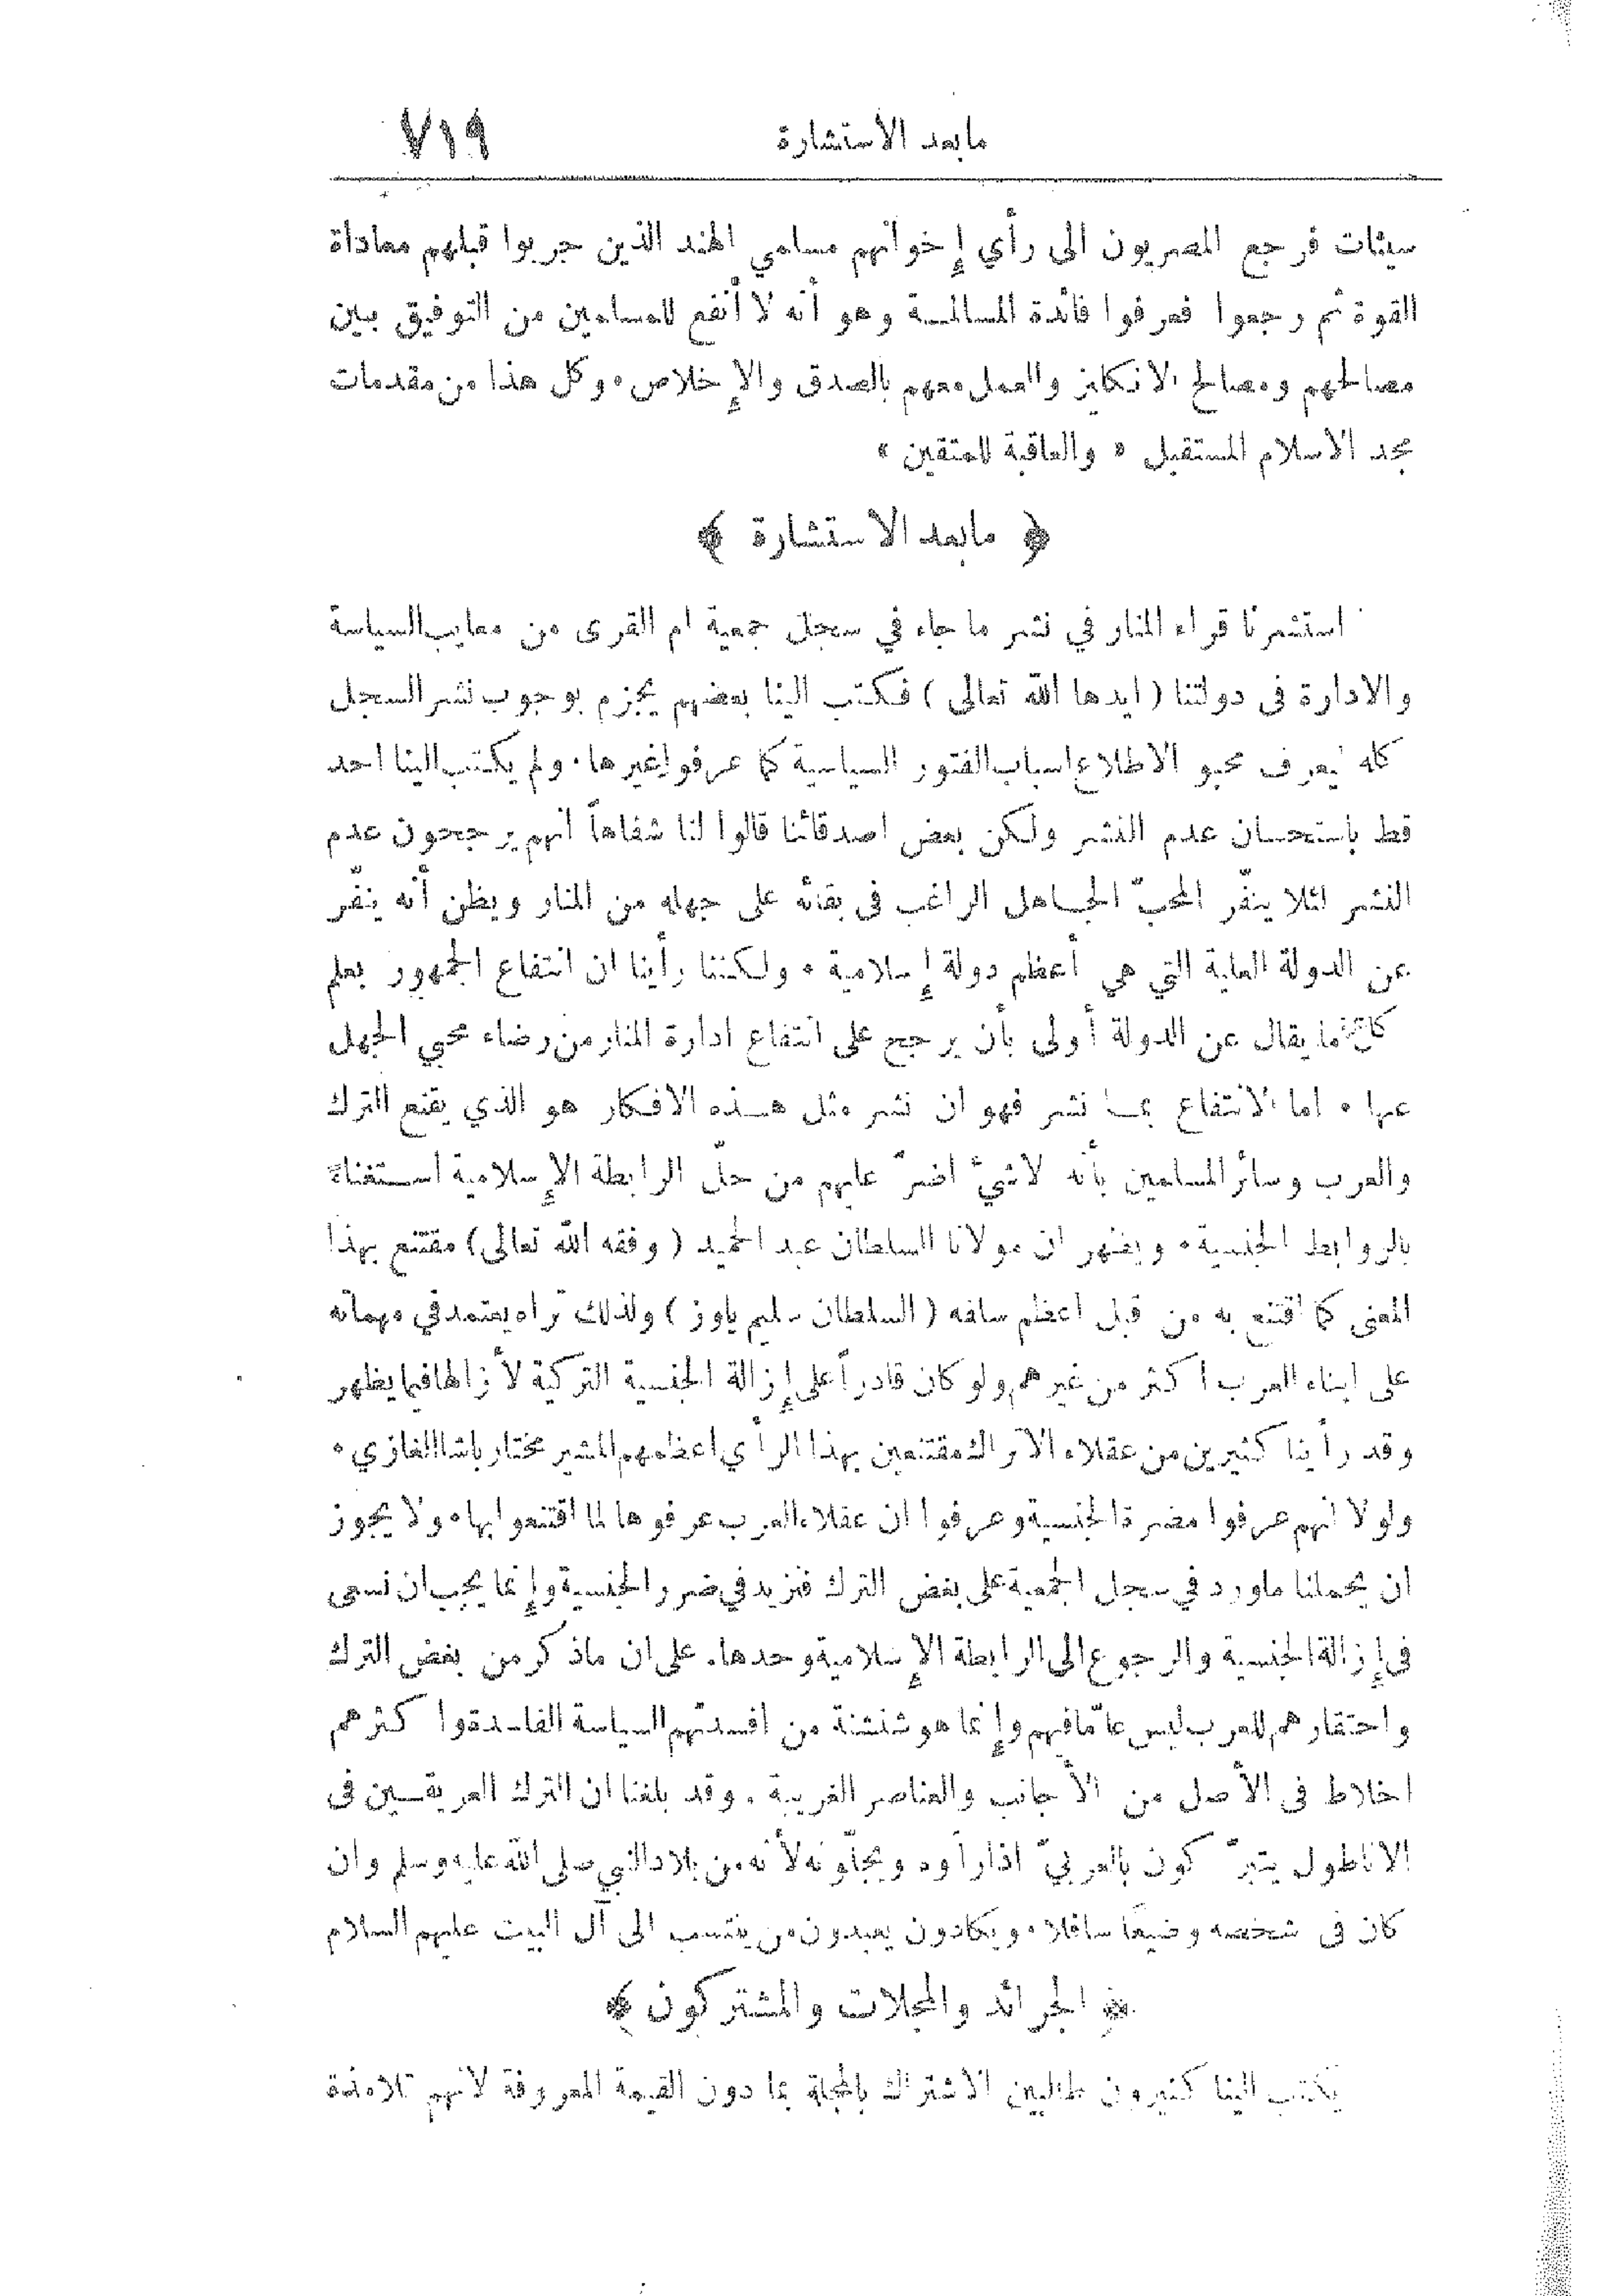 مابعد الاستشارة ٧١٩
سيئات فرجع المصريون الى رأي إخوانهم مسلمي الهند الذين جربوا قبلهم معاداة
القوة ثم رجعوا فعرفوا فائدة المسالمة وهو أنه لا أنفع للمسلمين من التوفيق بين
مصالحهم ومصالح الانكليز والعمل معهم بالصدق والإخلاص. وكل هذا من مقدمات
مجد الاسلام المستقبل « والعاقبة للمتقين »
﴿ مابعد الاستشارة ﴾
استشرنا قراء المنار في نشر ما جاء في سجل جمعية ام القرى من معايب السياسة
والادارة فى دولتنا ( ايدها الله تعالى ) فكتب الينا بعضهم يجزم بوجوب نشر السجل
كله ليعرف محبو الاطلاع اسباب الفتور السياسية كما عرفوا غيرها. ولم يكتب الينا احد
قط باستحسان عدم النشر ولكن بعض اصدقائنا قالوا لنا شفاهاً انهم يرجحون عدم
النشر لئلا ينفّر المحبّ الجاهل الراغب فى بقائه على جهله من المنار ويظن أنه ينفّر
عن الدولة العلية التي هي أعظم دولة إسلامية. ولكننا رأينا ان انتفاع الجمهور بعلم
ما يقال عن الدولة أولى بأن يرجح على انتفاع ادارة المنار من رضاء محبي الجهل
عنها. اما الانتفاع بما نشر فهو ان نشر مثل هذه الافكار هو الذي يقنع الترك
والعرب وسائر المسلمين بأنه لاشيء اضرّ عليهم من حلّ الرابطة الإسلامية استغناءً
بالروابط الجنسية. ويظهر ان مولانا السلطان عبد الحميد ( وفقه الله تعالى ) مقتنع بهذا
المعنى كما اقتنع به من قبل اعظم سلفه ( السلطان سليم ياوز ) ولذلك تراه يعتمد في مهماته
على ابناء العرب اكثر من غيرهم ولو كان قادراً على إزالة الجنسية التركية لأزالها فيما يظهر
وقد رأينا كثيرين من عقلاء الاتراك مقتنعين بهذا الرأي اعظمهم المشير مختار باشا الغازي.
ولولا انهم عرفوا مضرة الجنسية وعرفوا ان عقلاء العرب عرفوها لما اقتنعوا بها. ولا يجوز
ان يحملنا ماورد في سجل الجمعية على بغض الترك فنزيد في ضرر الجنسية وإنما يجب ان نسعى
فى إزالة الجنسية والرجوع الى الرابطة الإسلامية وحدها. على ان ماذكر من بغض الترك
واحتقارهم للعرب ليس عامّاً فيهم وإنما هو شنشنة من افسدتهم السياسة الفاسدة واكثرهم
اخلاط فى الأصل من الأجانب والعناصر الغريبة. وقد بلغنا ان الترك العريقين فى
الاناطول يتبرّكون بالعربيّ اذا رأوه ويجلّونه لأنه من بلاد النبي صلى الله عليه وسلم وان
كان فى شخصه وضيعاً سافلاً. ويكادون يعبدون من ينتسب الى آل البيت عليهم السلام
﴿ الجرائد والمجلات والمشتركون ﴾
يكتب الينا كثيرون طالبين الاشتراك بالمجلة بما دون القيمة المعروفة لانهم تلامذة